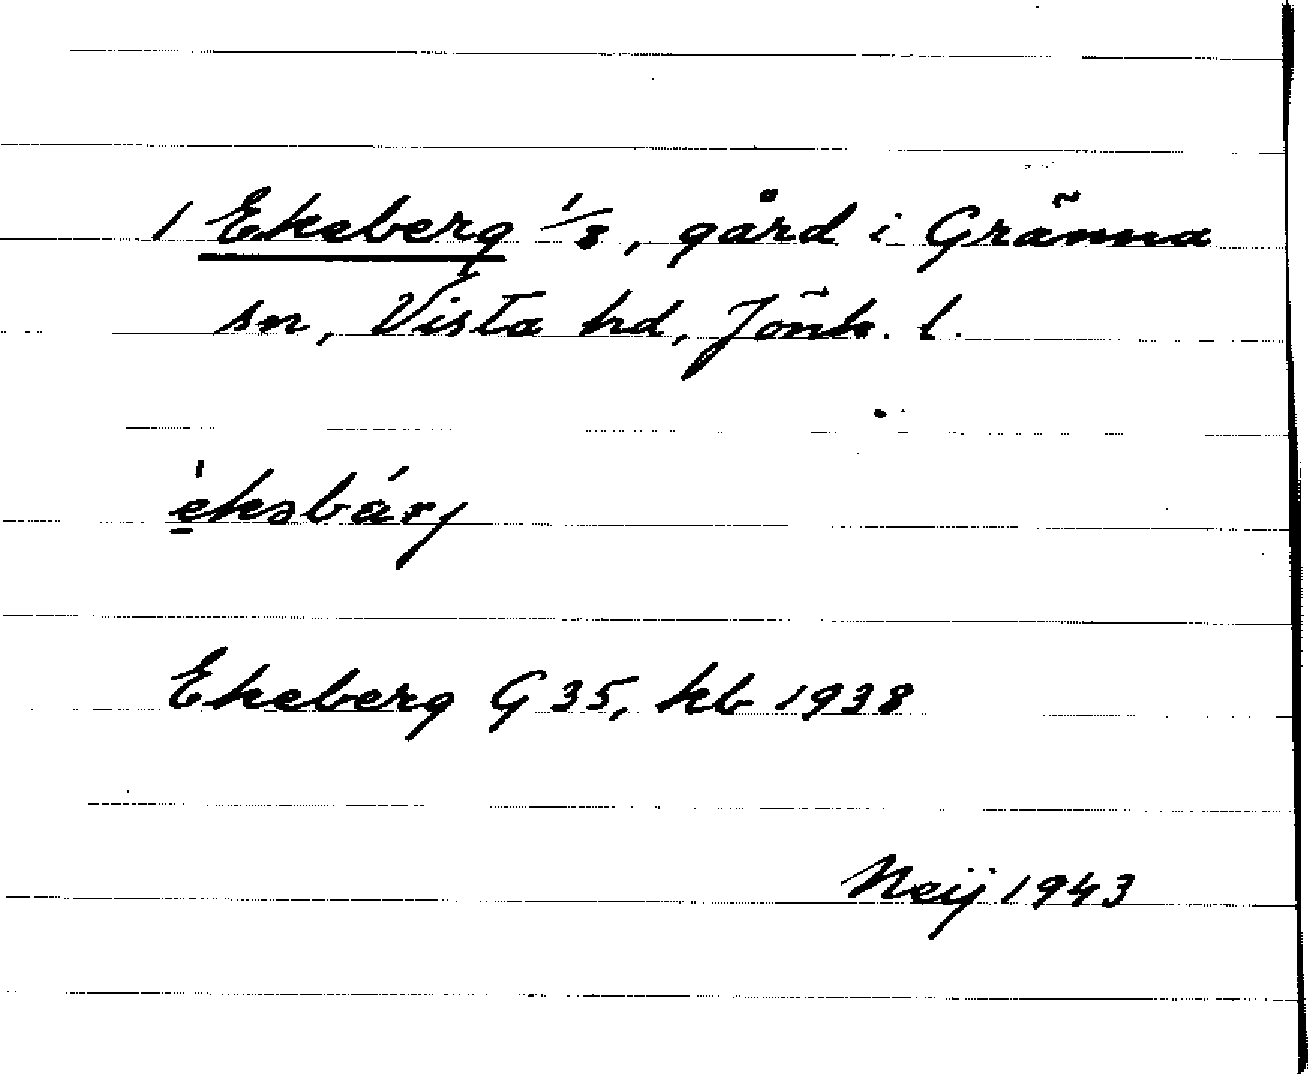 1 Ekeberg 1/8, gård i Gränna
sn, Vista hd, Jönk. l.
èksbárj
Ekeberg G 35, kb 1938
Neij 1943